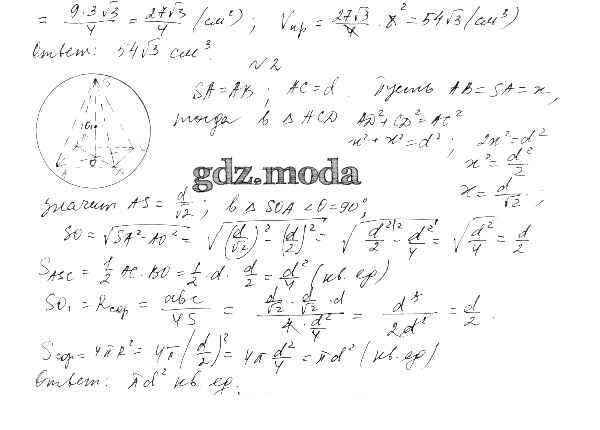 = 9·3√3/4 = 27√3/4 (см²); Vпр = 27√3/4 · 8² = 54√3 (см³)
Ответ: 54√3 см³.
№2
SA = AB; AC = d. Пусть AB = SA = x,
тогда в △ACD AD² + CD² = AC²
x² + x² = d²; 2x² = d²
x² = d²/2
gdz.moda
x = d/√2;
значит AS = d/√2; в △SOA ∠O = 90°,
SO = √(SA² - AO²) = √((d/√2)² - (d/2)²) = √(d²/2 - d²/4) = √(d²/4) = d/2
S_ASC = 1/2 AC·BO = 1/2 · d · d/2 = d²/4 (кв. ед)
SO₁ = Rсфр = abc/4S = (d/√2 · d/√2 · d)/(4 · d²/4) = d³/2d² = d/2.
Sсфр = 4πR² = 4π(d/2)² = 4π d²/4 = πd² (кв. ед)
Ответ: πd² кв. ед.